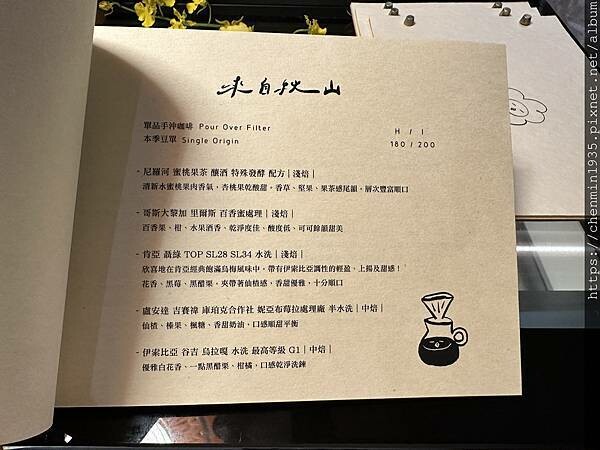 來自秋山
單品手沖咖啡 Pour Over Filter
本季豆單 Single Origin
H / I
180 / 200
- 尼羅河 蜜桃果茶 釀酒 特殊發酵 配方｜淺焙｜
清新水蜜桃果肉香氣，杏桃乾酸甜。香草、堅果、果茶感尾韻。層次豐富順口
- 哥斯大黎加 里爾斯 百香蜜處理｜淺焙｜
百香果、柑、水果酒香、乾淨度佳、酸度低、可可餘韻甜美
- 肯亞 聶綠 TOP SL28 SL34 水洗｜淺焙｜
欣喜地在肯亞經典飽滿烏梅風味中，帶有伊索比亞調性的輕盈、上揚及甜感！
花香、黑莓、黑醋果。夾帶著仙楂感，香甜優雅，十分順口
- 盧安達 吉賽褘 庫珀克合作社 妮亞布莓拉處理廠 半水洗｜中焙｜
仙楂、榛果、楓糖、香甜奶油，口感順甜平衡
- 伊索比亞 谷吉 烏拉嘎 水洗 最高等級 G1｜中焙｜
優雅白花香、一點黑醋果、柑橘，口感乾淨洗鍊
https://chenmin1935.pixnet.net/album